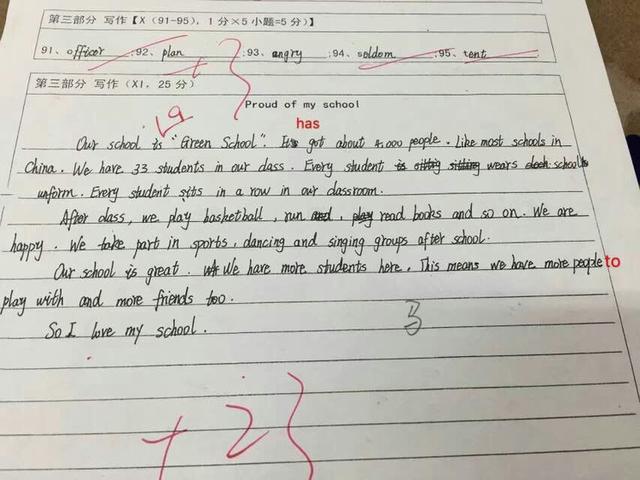 第三部分 写作【X(91-95), 1分×5小题=5分)】
91、officer ;92、plan ;93、angry 94、seldom ;95、tent
第三部分 写作(XI, 25分)
Proud of my school
19
has
Our school is "Green School". It's got about 4,000 people. Like most schools in
China. We have 33 students in our class. Every student wears school's
unform. Every student sits in a row in our classroom.
After class, we play basketball, run, read books and so on. We are
happy. We take part in sports, dancing and singing groups after school.
Our school is great. We have more students here. This means we have more people to
play with and more friends too.
So I love my school.
3
+2